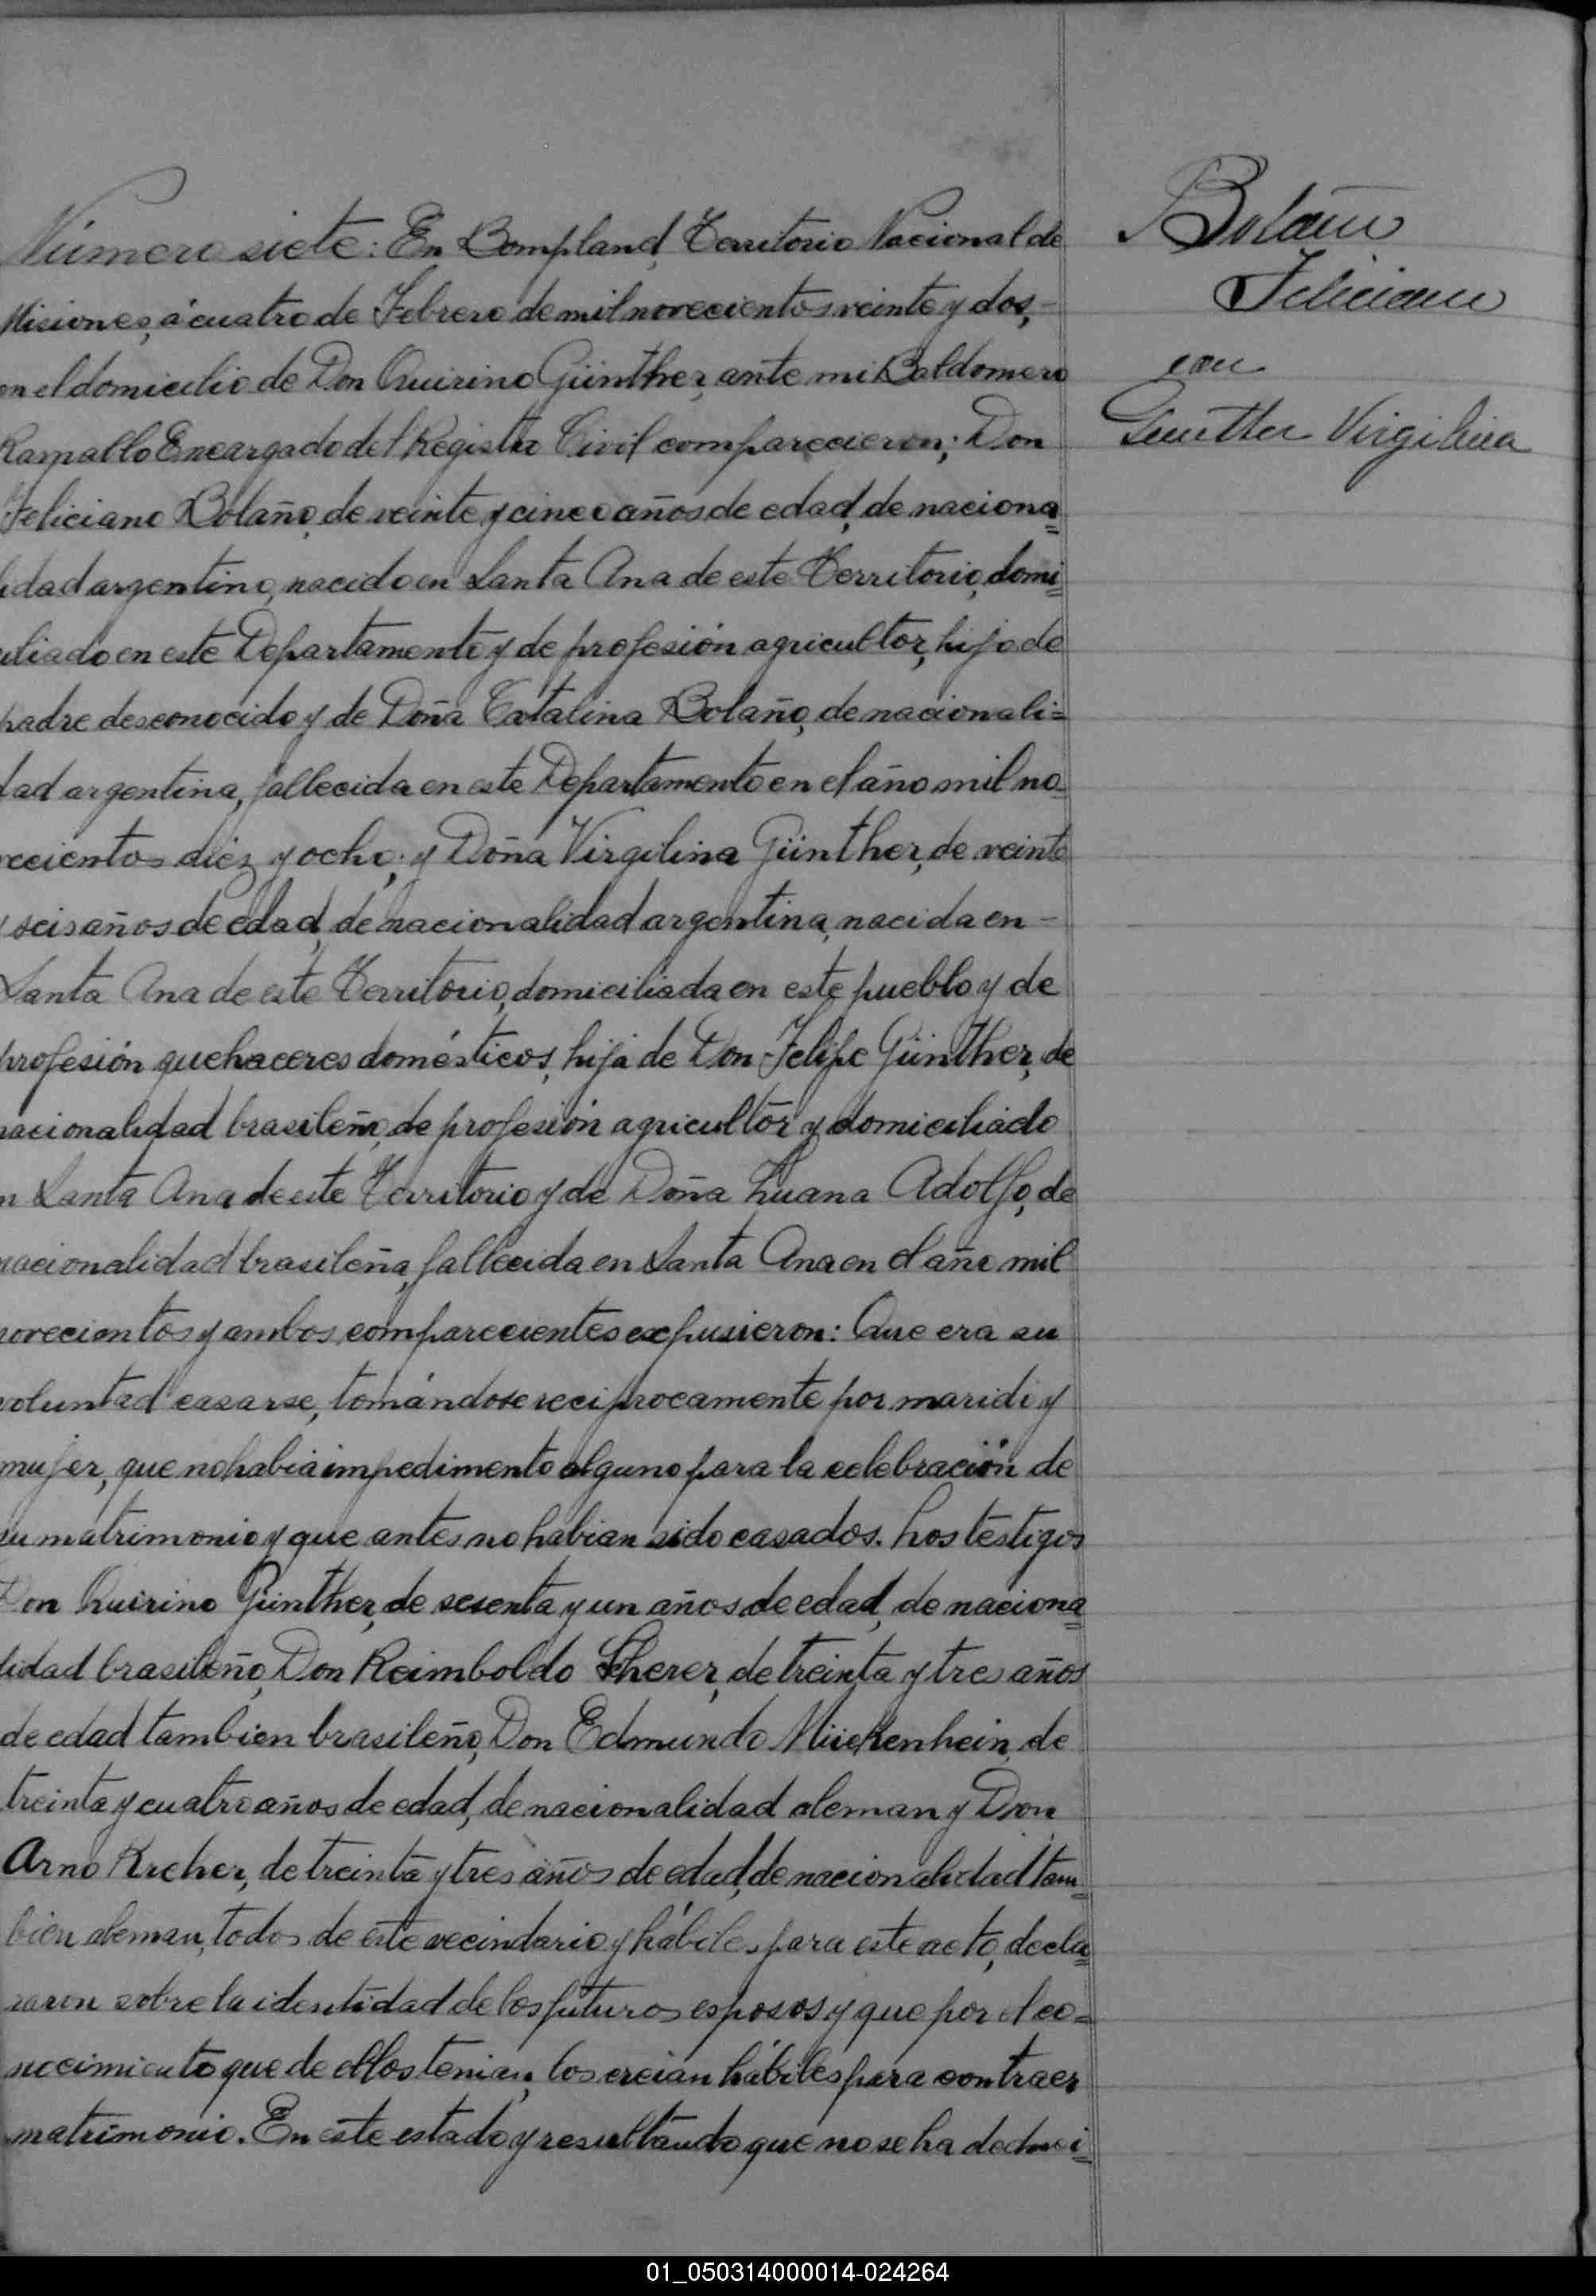 Número siete: En Bompland, Territorio Nacional de
Misiones, á cuatro de Febrero de mil novecientos veinte y dos,-
en el domicilio de Don Quirino Günther, ante mi Baldomero
Ramallo Encargado del Registro Civil comparecieron; Don
Feliciano Bolaño, de veinte y cinco años de edad, de naciona=
lidad argentino, nacido en Santa Ana de este Territorio, domi=
ciliado en este Departamento y de profesión agricultor, hijo de
padre desconocido y de Doña Catalina Bolaño, de nacionali=
dad argentina, fallecida en este Departamento en el año mil no=
vecientos diez y ocho; y Doña Virgilina Günther, de veinte
y seis años de edad, de nacionalidad argentina, nacida en -
Santa Ana de este Territorio, domiciliada en este pueblo y de
profesión quehaceres domésticos, hija de Don Felipe Günther, de
nacionalidad brasileño, de profesión agricultor y domiciliado
en Santa Ana de este Territorio y de Doña Luana Adolfo, de
nacionalidad brasileña, fallecida en Santa Ana en el año mil
novecientos y ambos comparecientes expusieron: Que era su
voluntad casarse, tomándose reciprocamente por marido y
mujer, que no habia impedimento alguno para la celebración de
su matrimonio y que antes no habian sido casados. Los testigos
Don Quirino Günther, de sesenta y un años de edad, de naciona=
lidad brasileño, Don Reimboldo Scherer, de treinta y tres años
de edad tambien brasileño, Don Edmundo Mückenhein, de
treinta y cuatro años de edad, de nacionalidad aleman y Don
Arno Krcher, de treinta y tres años de edad, de nacionalidad tam=
bien aleman, todos de este vecindario y hábiles para este acto, decla=
raron sobre la identidad de los futuros esposos y que por el co=
nocimiento que de ellos tenian, los creian hábiles para contraer
matrimonio. En este estado y resultando que no se ha deduci=
Bolaño
Feliciano
con
Gunther Virgilina
01_050314000014-024264